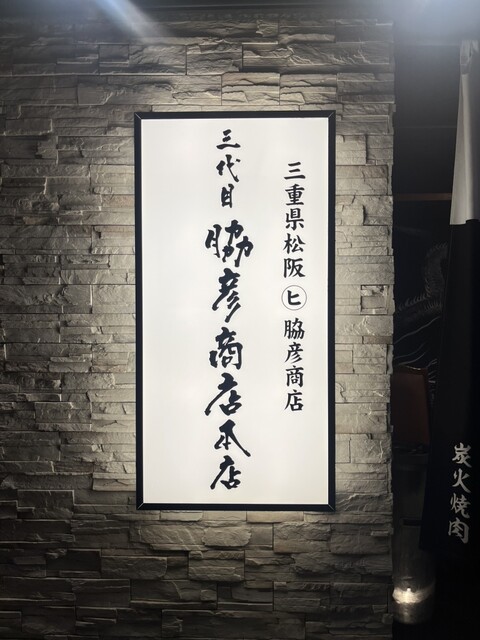 三重県松阪 ㋪ 脇彦商店
三代目 脇彦商店本店
炭火焼肉